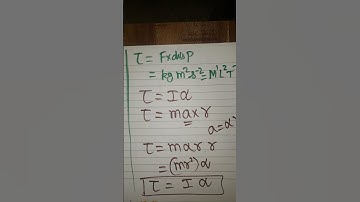 τ = F x disp
= kg m²s⁻² = M¹L²T⁻
τ = I α
τ = ma x r
a = α
τ = mαr r
= (mr²) α
τ = I α